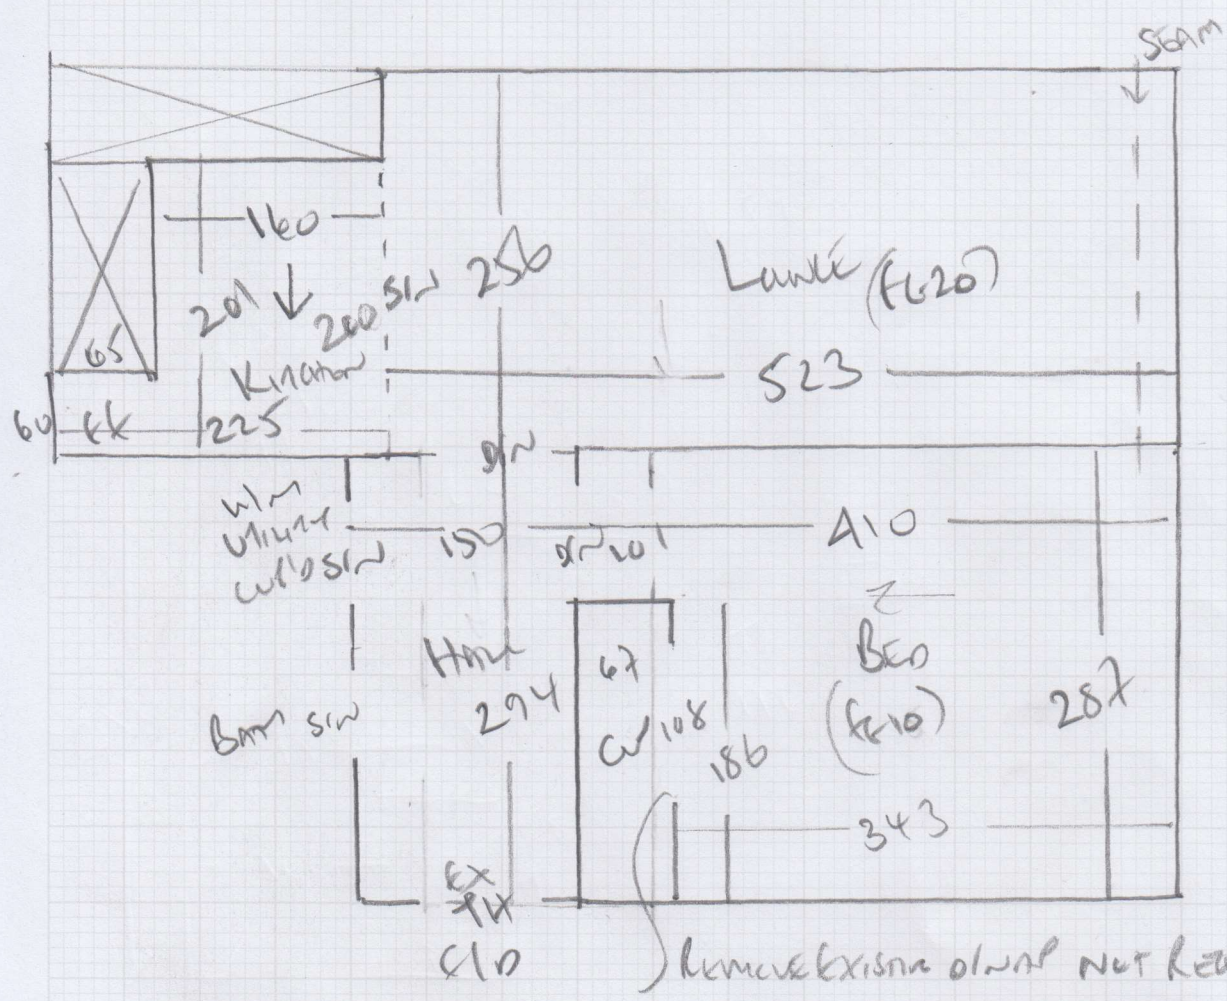 SEAM
160
201
200
S/N
256
LOUNGE (FE20)
65
KITCHEN
523
60
225
D/N
W/M
UTILITY
CUP'D S/N
150
D/N
101
410
BED
(FE10)
HALL
294
67
108
186
287
BATH S/N
343
EX
C/D
REMOVE EXISTING D/N
NOT